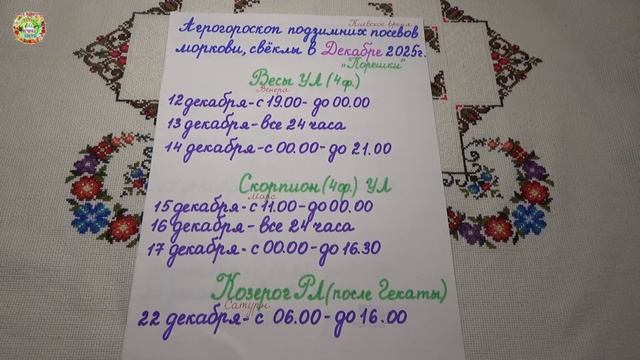 Киевское время
Агрогороскоп подзимних посевов
моркови, свёклы в Декабре 2025г.
„Корешки"
Весы УЛ (4ф.)
Венера
12 декабря - с 19.00 - до 00.00
13 декабря - все 24 часа
14 декабря - с 00.00 - до 21.00
Скорпион (4ф.) УЛ
Марс
15 декабря - с 11.00 - до 00.00
16 декабря - все 24 часа
17 декабря - с 00.00 - до 16.30
Козерог РЛ (после Гекаты)
Сатурн
22 декабря - с 06.00 - до 16.00